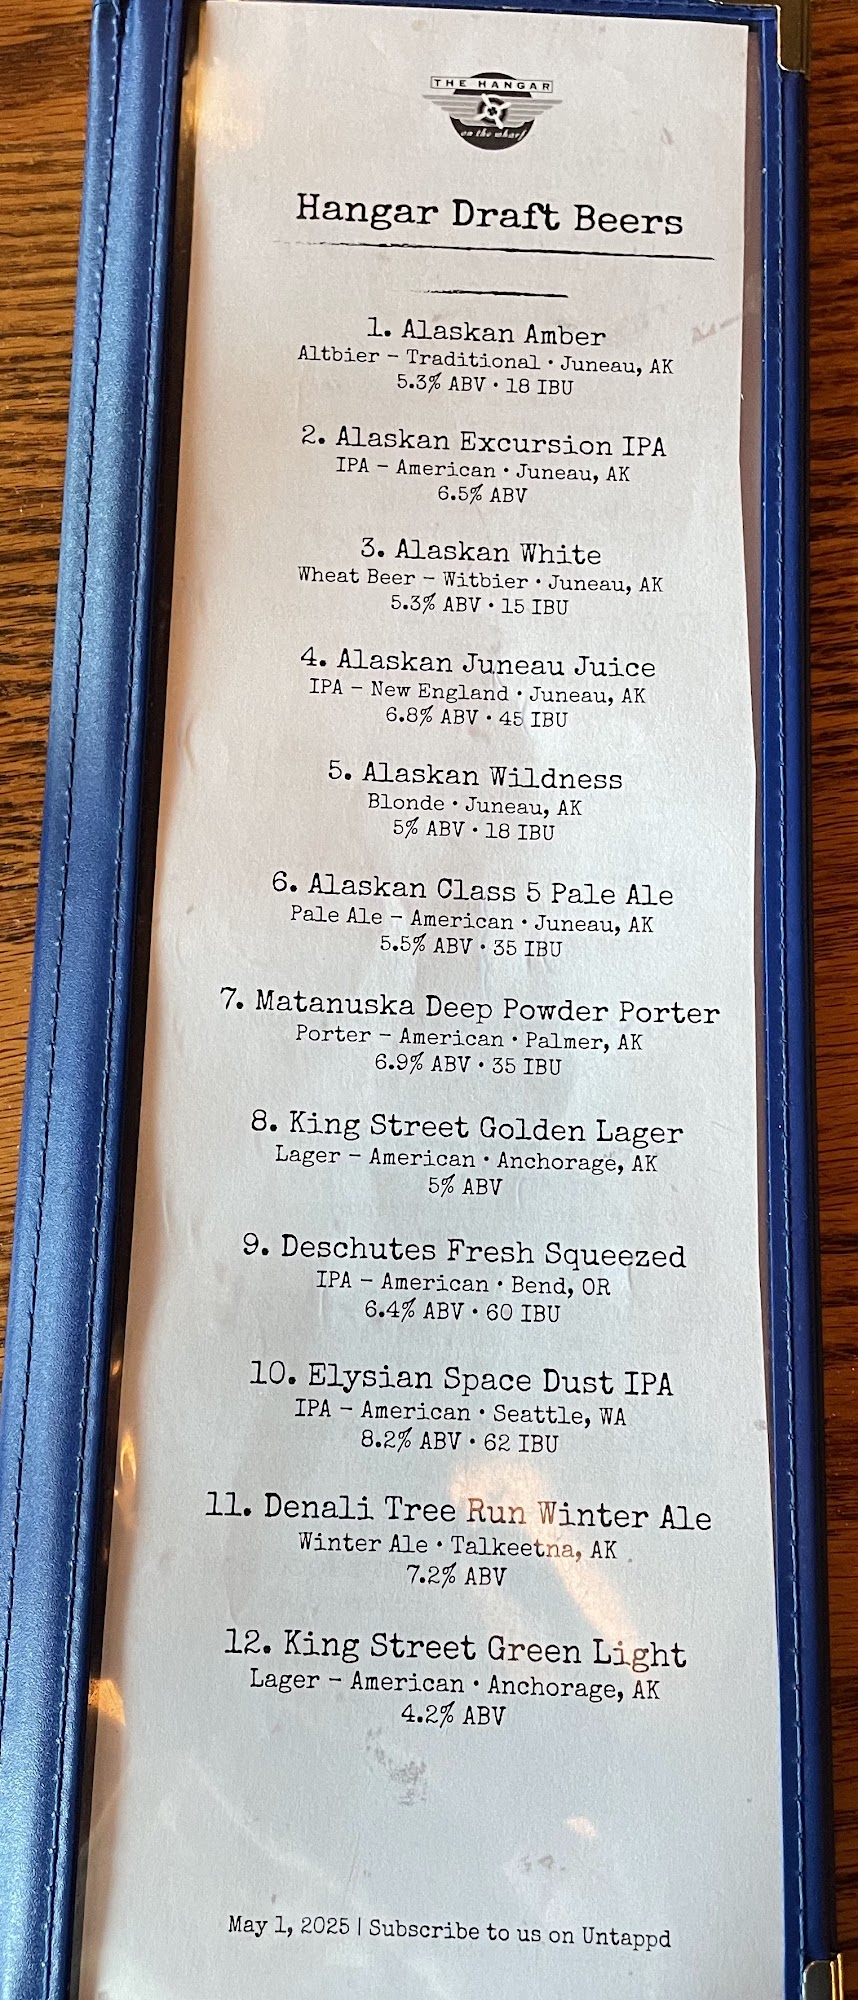 THE HANGAR
on the wharf
Hangar Draft Beers
1. Alaskan Amber
Altbier - Traditional • Juneau, AK
5.3% ABV • 18 IBU
2. Alaskan Excursion IPA
IPA - American • Juneau, AK
6.5% ABV
3. Alaskan White
Wheat Beer - Witbier • Juneau, AK
5.3% ABV • 15 IBU
4. Alaskan Juneau Juice
IPA - New England • Juneau, AK
6.8% ABV • 45 IBU
5. Alaskan Wildness
Blonde • Juneau, AK
5% ABV • 18 IBU
6. Alaskan Class 5 Pale Ale
Pale Ale - American • Juneau, AK
5.5% ABV • 35 IBU
7. Matanuska Deep Powder Porter
Porter - American • Palmer, AK
6.9% ABV • 35 IBU
8. King Street Golden Lager
Lager - American • Anchorage, AK
5% ABV
9. Deschutes Fresh Squeezed
IPA - American • Bend, OR
6.4% ABV • 60 IBU
10. Elysian Space Dust IPA
IPA - American • Seattle, WA
8.2% ABV • 62 IBU
11. Denali Tree Run Winter Ale
Winter Ale • Talkeetna, AK
7.2% ABV
12. King Street Green Light
Lager - American • Anchorage, AK
4.2% ABV
May 1, 2025 | Subscribe to us on Untappd